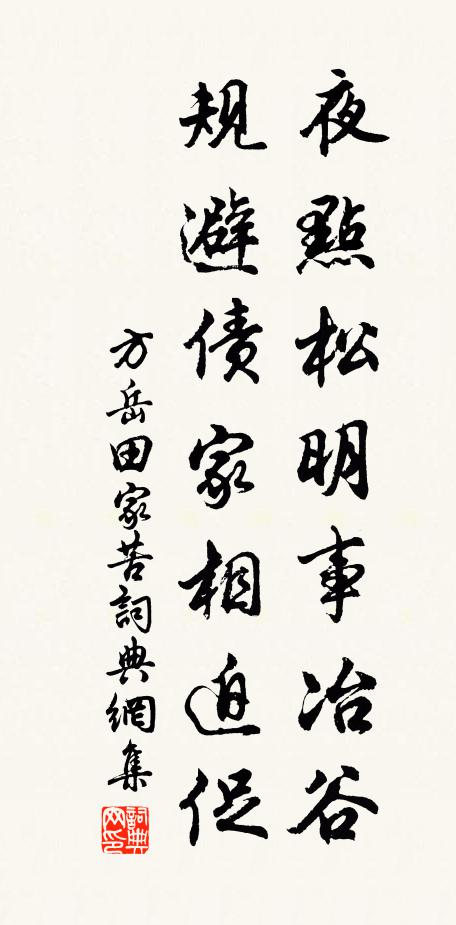 夜點松明事冶谷
規避債家相迫促
方岳田家苦詞典網集
詞典
网印